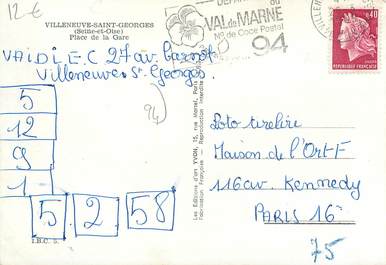 12€
VILLENEUVE-SAINT-GEORGES
(Seine-et-Oise)
Place de la Gare
VAIDIE.C 27 av. Carnot
Villeneuve St Georges
DÉPARTEMENT du
VAL de MARNE
No de Code Postal
94
0,40
RÉPUBLIQUE FRANÇAISE
(94)
5
12
9
1
5 2 58
Les Éditions d'art YVON, 15, rue Martel, Paris
Fabrication Française - Reproduction interdite
Loto tirelire
Maison de l'ORTF
116 av. Kennedy
PARIS 16e
75
I.B.C. 5.